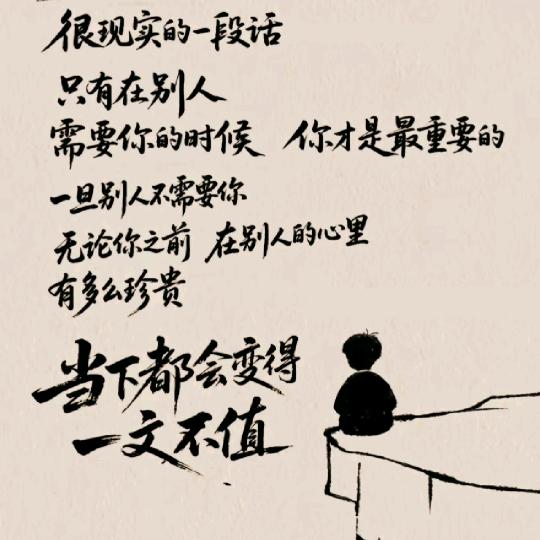 很现实的一段话
只有在别人
需要你的时候 你才是最重要的
一旦别人不需要你
无论你之前 在别人的心里
有多么珍贵
当下都会变得
一文不值